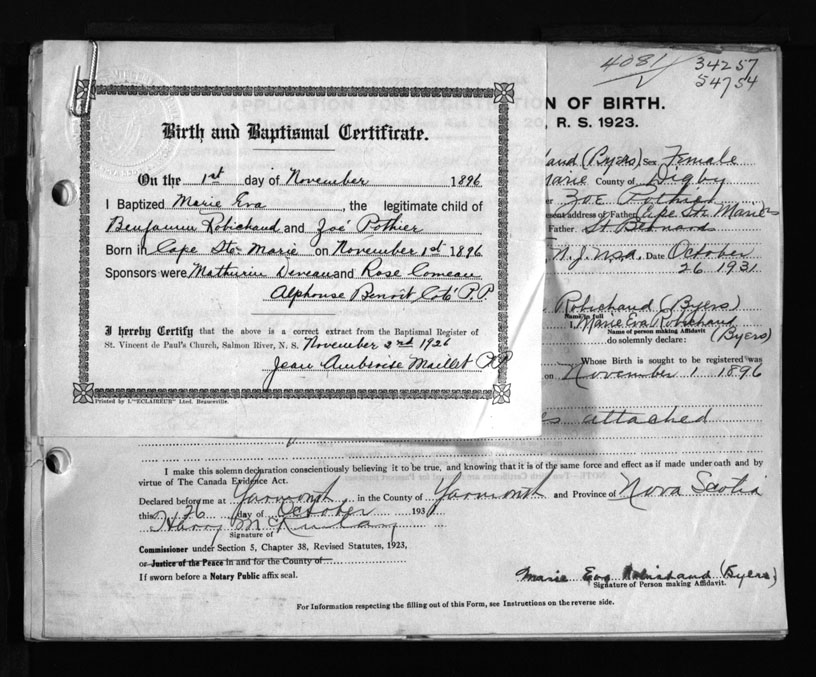 4081 34257
54754
Birth and Baptismal Certificate.
On the 1st day of November 1896
I Baptized Marie Eva, the legitimate child of
Benjamin Robichaud and Zoé Pothier
Born in Cape Ste Marie on November 1st 1896
Sponsors were Mathurin Deveau and Rose Comeau
Alphonse Benoit Coté P.P.
I hereby Certify that the above is a correct extract from the Baptismal Register of
St. Vincent de Paul's Church, Salmon River, N. S. November 2nd 1926
Jean Ambroise Maillet P.P.
Printed by L'"ECLAIREUR" Ltd. Beauceville.
N OF BIRTH.
, R. S. 1923.
aud (Byers) Sex Female
Marie County of Digby
er Zoe Pothier
resent address of Father Cape Ste Marie
Father St Bernard
N. J. USA. Date October
26 1931
Robichaud (Byers)
Name in full
I, Marie Eva Robichaud
Name of person making Affidavit
do solemnly declare: (Byers)
Whose Birth is sought to be registered was
on November 1 1896
es attached
I make this solemn declaration conscientiously believing it to be true, and knowing that it is of the same force and effect as if made under oath and by
virtue of The Canada Evidence Act.
Declared before me at Yarmouth in the County of Yarmouth and Province of Nova Scotia
this 26 day of October 193
Harry McKinlay
Signature of
Commissioner under Section 5, Chapter 38, Revised Statutes, 1923,
or Justice of the Peace in and for the County of
If sworn before a Notary Public affix seal.
Marie Eva Robichaud (Byers)
Signature of Person making Affidavit.
For Information respecting the filling out of this Form, see Instructions on the reverse side.